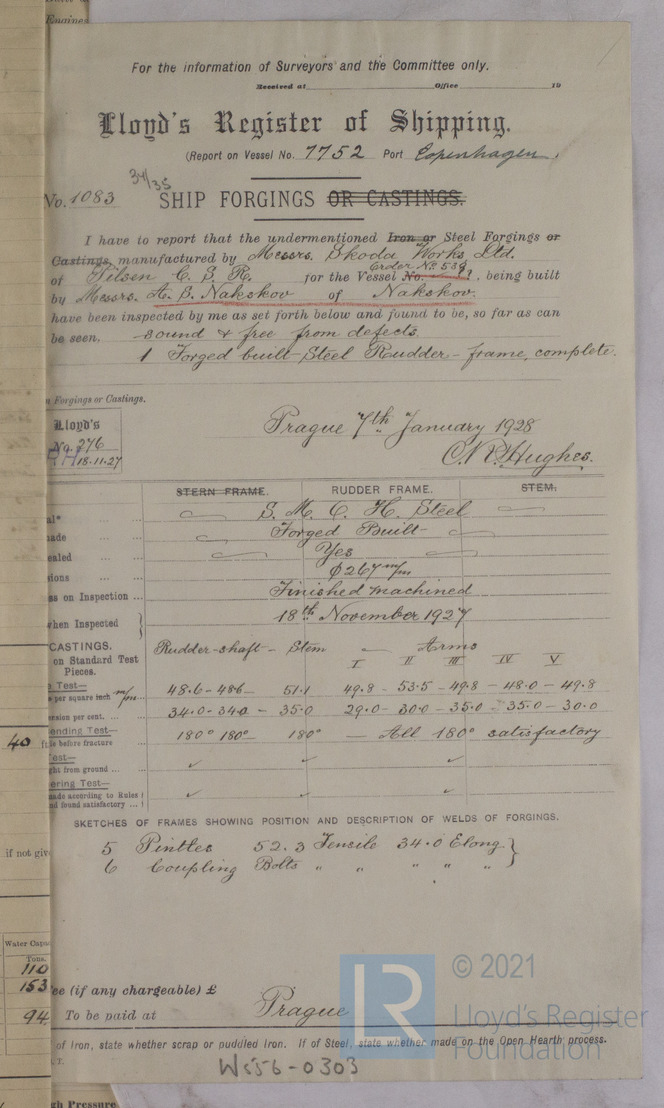 Engines
For the information of Surveyors and the Committee only.
Received at Office 19
Lloyd's Register of Shipping.
(Report on Vessel No. 7752 Port Copenhagen.
34/35
No. 1083 SHIP FORGINGS OR CASTINGS.
I have to report that the undermentioned Iron or Steel Forgings or
Castings, manufactured by Messrs. Skoda Works Ltd.
Order No 539
of Pilsen C. S. R. for the Vessel No. , being built
by Messrs. A. S. Nakskov of Nakskov.
have been inspected by me as set forth below and found to be, so far as can
be seen, sound & free from defects.
1 Forged built Steel Rudder-frame, complete.
n Forgings or Castings.
Lloyd's
No. 276
18.11.27
Prague 7th January 1928
C. R. Hughes.
STERN FRAME. RUDDER FRAME. STEM.
al* S. M. O. H. Steel
ade Forged Built
ealed Yes
sions φ 267 m/m
ss on Inspection ... Finished machined
when Inspected 18th November 1927
CASTINGS. Rudder-shaft - Stem - Arms
on Standard Test I II III IV V
Pieces.
e Test—
s per square inch m/m 48.6 - 48.6 - 51.1 49.8 - 53.5 - 49.8 - 48.0 - 49.8
ension per cent. ... 34.0 - 34.0 - 35.0 29.0 - 30.0 - 35.0 - 35.0 - 30.0
ending Test— 180° 180° 180° - All 180° satisfactory
40 ft
le before fracture
Test—
ght from ground ...
ering Test—
ade according to Rules
nd found satisfactory ...
SKETCHES OF FRAMES SHOWING POSITION AND DESCRIPTION OF WELDS OF FORGINGS.
5 Pintles 52.3 Tensile 34.0 Elong. }
6 Coupling Bolts " " " " "
if not give
Water Capa
Tons.
110
153
94
ee (if any chargeable) £
To be paid at Prague
of Iron, state whether scrap or puddled Iron. If of Steel, state whether made on the Open Hearth process.
W556-0303
gh Pressure
© 2021
LR
Lloyd's Register
Foundation